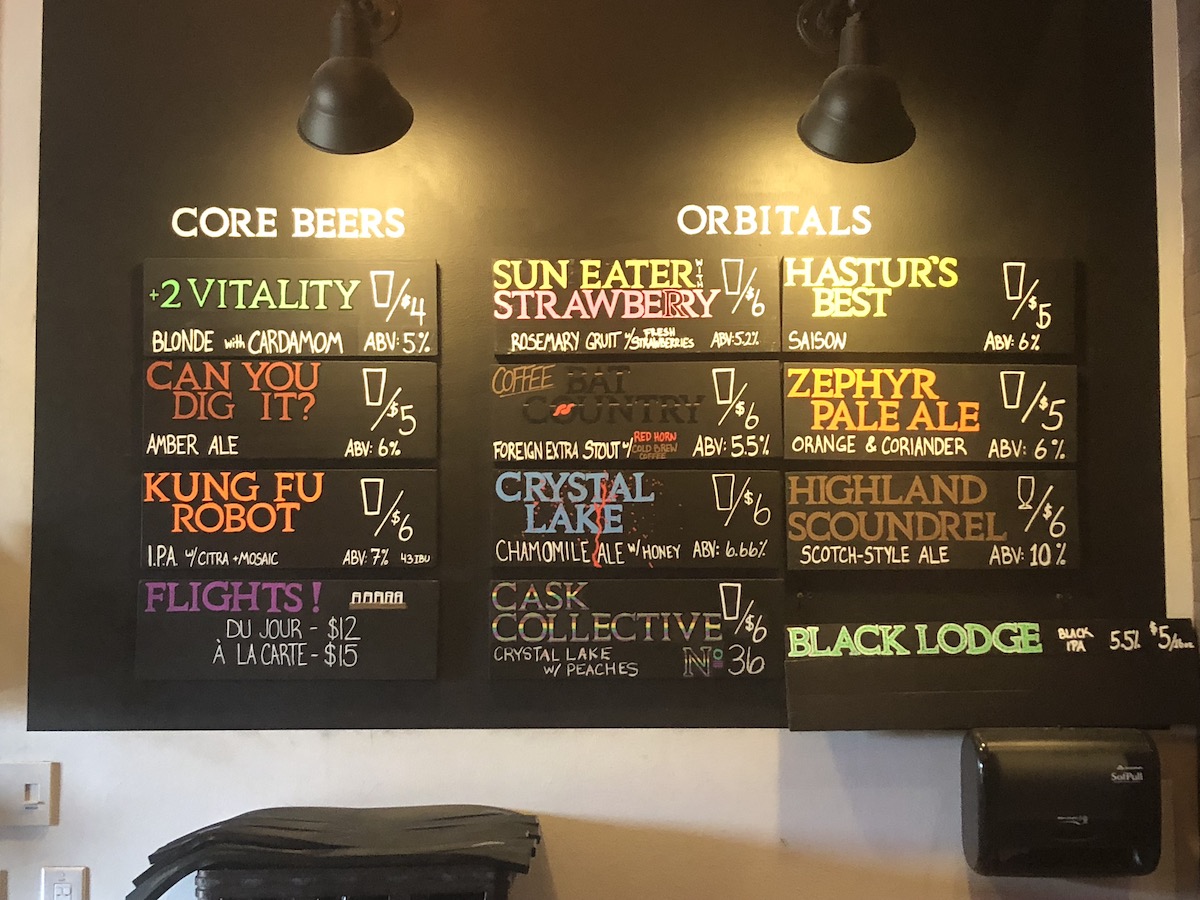 CORE BEERS
+2 VITALITY /$4
BLONDE with CARDAMOM ABV: 5%
CAN YOU
DIG IT? /$5
AMBER ALE ABV: 6%
KUNG FU
ROBOT /$6
I.P.A w/ CITRA + MOSAIC ABV: 7% 43 IBU
FLIGHTS!
DU JOUR - $12
À LA CARTE - $15
ORBITALS
SUN EATER WITH
STRAWBERRY /$6
ROSEMARY GRUIT w/ FRESH STRAWBERRIES ABV: 5.2%
COFFEE BAT
COUNTRY /$6
FOREIGN EXTRA STOUT w/ RED HORN COLD BREW COFFEE ABV: 5.5%
CRYSTAL
LAKE /$6
CHAMOMILE ALE w/ HONEY ABV: 6.66%
CASK
COLLECTIVE /$6
CRYSTAL LAKE
W/ PEACHES Nº 36
HASTUR'S
BEST /$5
SAISON ABV: 6%
ZEPHYR
PALE ALE /$5
ORANGE & CORIANDER ABV: 6%
HIGHLAND
SCOUNDREL /$6
SCOTCH-STYLE ALE ABV: 10%
BLACK LODGE BLACK IPA 5.5% $5/16oz
SofPull